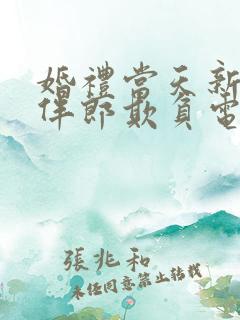 婚禮當天新
伴郎欺負電
張兆和
未任同意禁止轉載